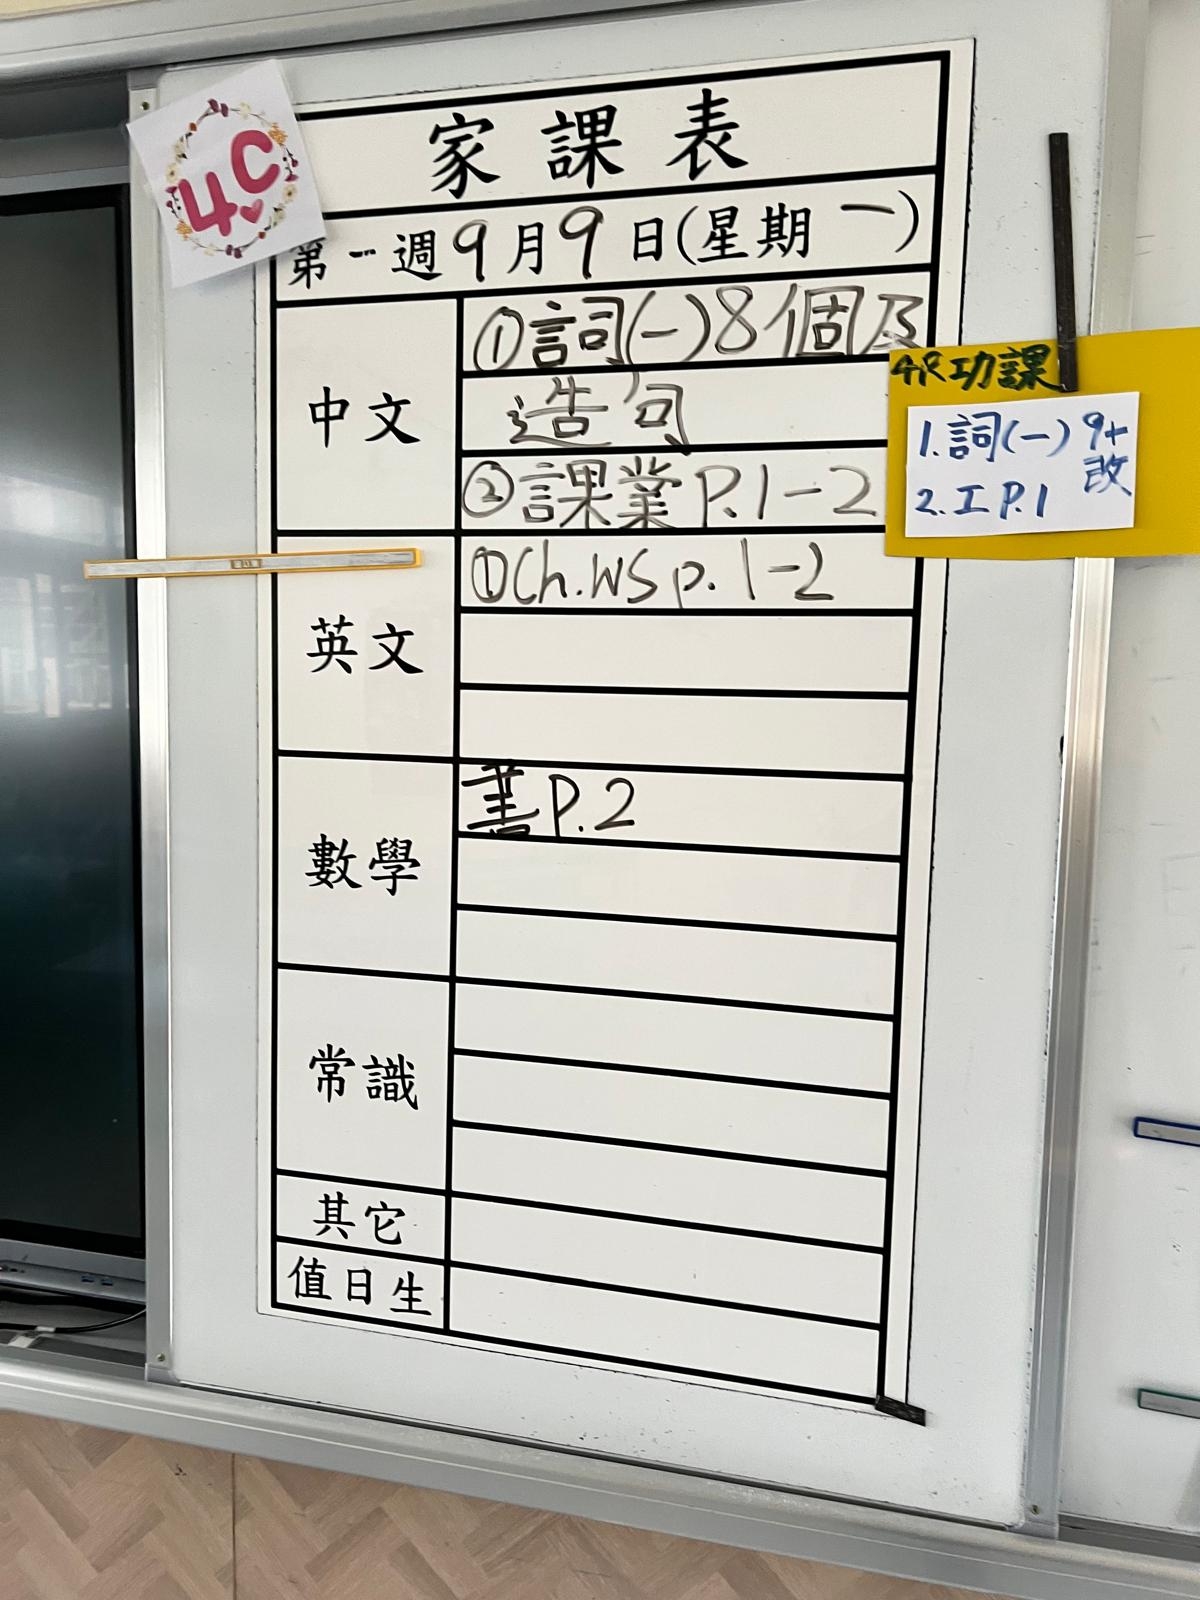 4C
家課表
第一週9月9日(星期一)
中文
①詞(一)8個及
造句
②課業P.1-2
英文
①Ch.WS p.1-2
數學
書P.2
常識
其它
值日生
4R功課
1.詞(一)9+
改
2.工P.1